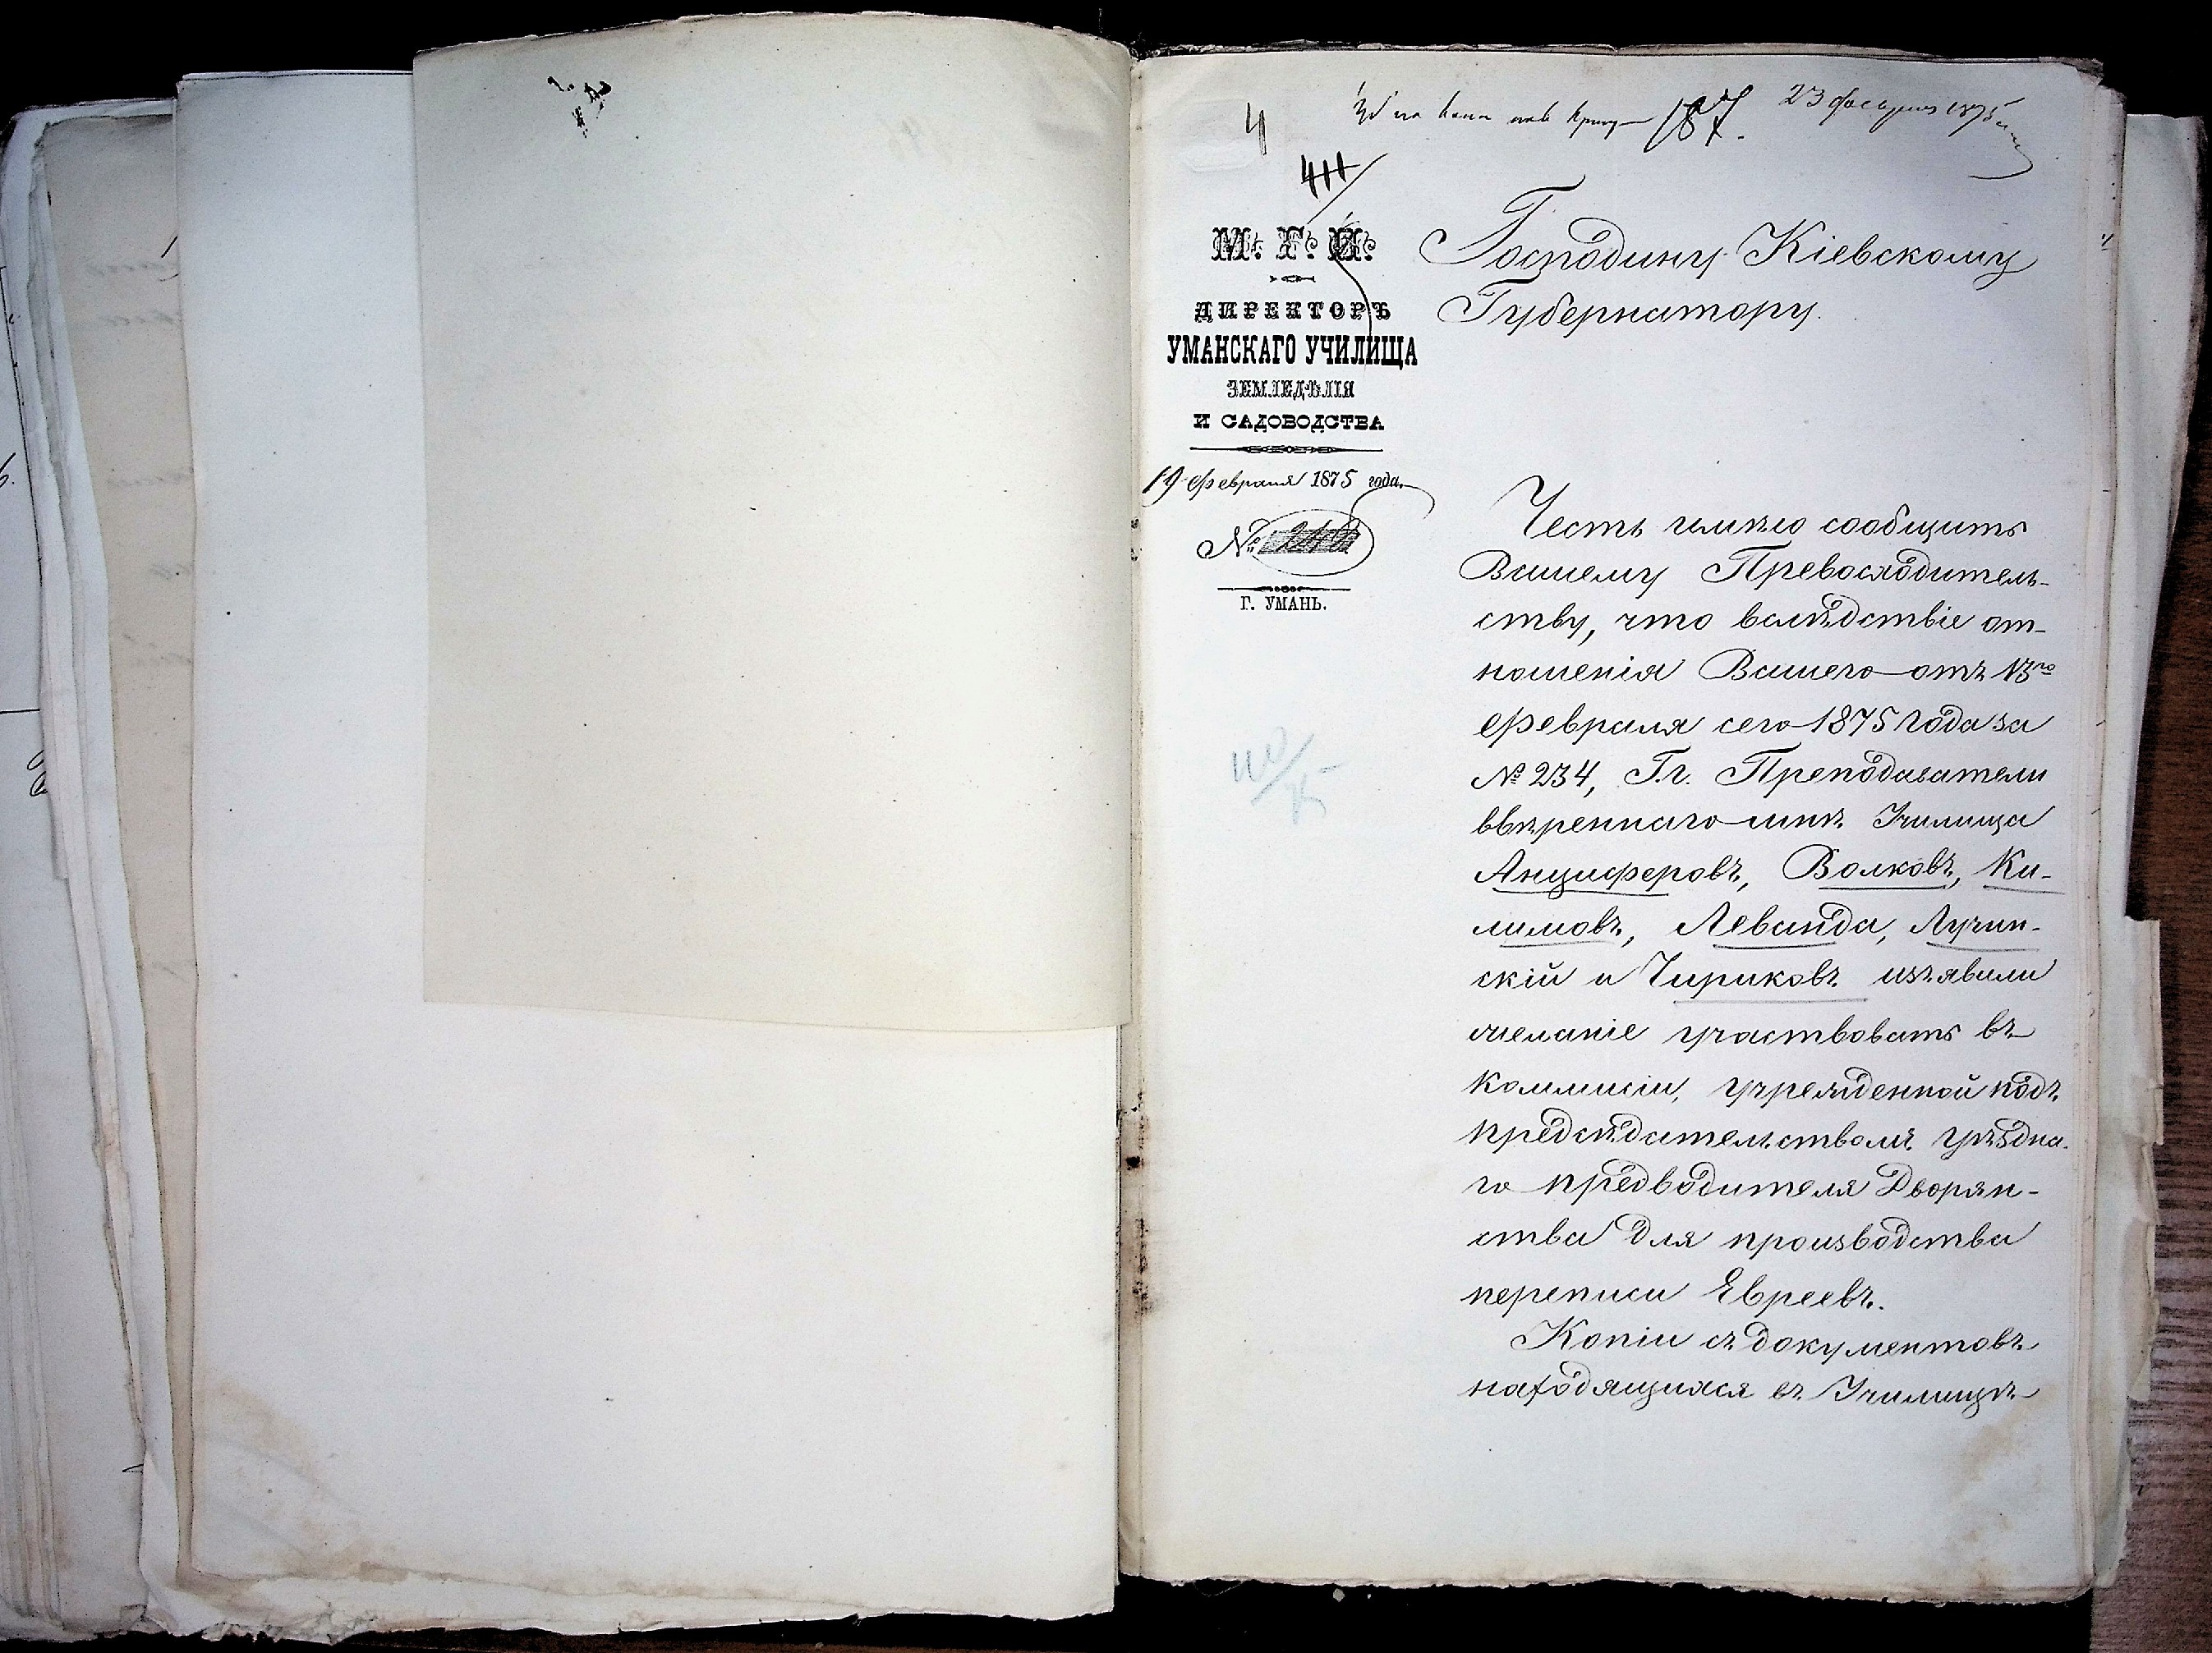 4
187.
23 февраля 1875
411
М. Г. И.
ДИРЕКТОРЪ
УМАНСКАГО УЧИЛИЩА
ЗЕМЛЕДѢЛІЯ
И САДОВОДСТВА
19 февраля 1875 года.
№
Г. УМАНЬ.
Господину Кіевскому
Губернатору.
Честь имѣю сообщить
Вашему Превосходитель-
ству, что вслѣдствіе от-
ношенія Вашего отъ 13го
февраля сего 1875 года за
№ 234, Г.г. Преподаватели
ввѣреннаго мнѣ Училища
Анциферовъ, Волковъ, Ки-
лимовъ, Леванда, Лучин-
скій и Чириковъ изъявили
желаніе участвовать въ
Коммисіи, учрежденной подъ
предсѣдательствомъ уѣздна-
го предводителя Дворян-
ства для производства
переписи Евреевъ.
Копіи съ документовъ
находящихся въ Училищѣ